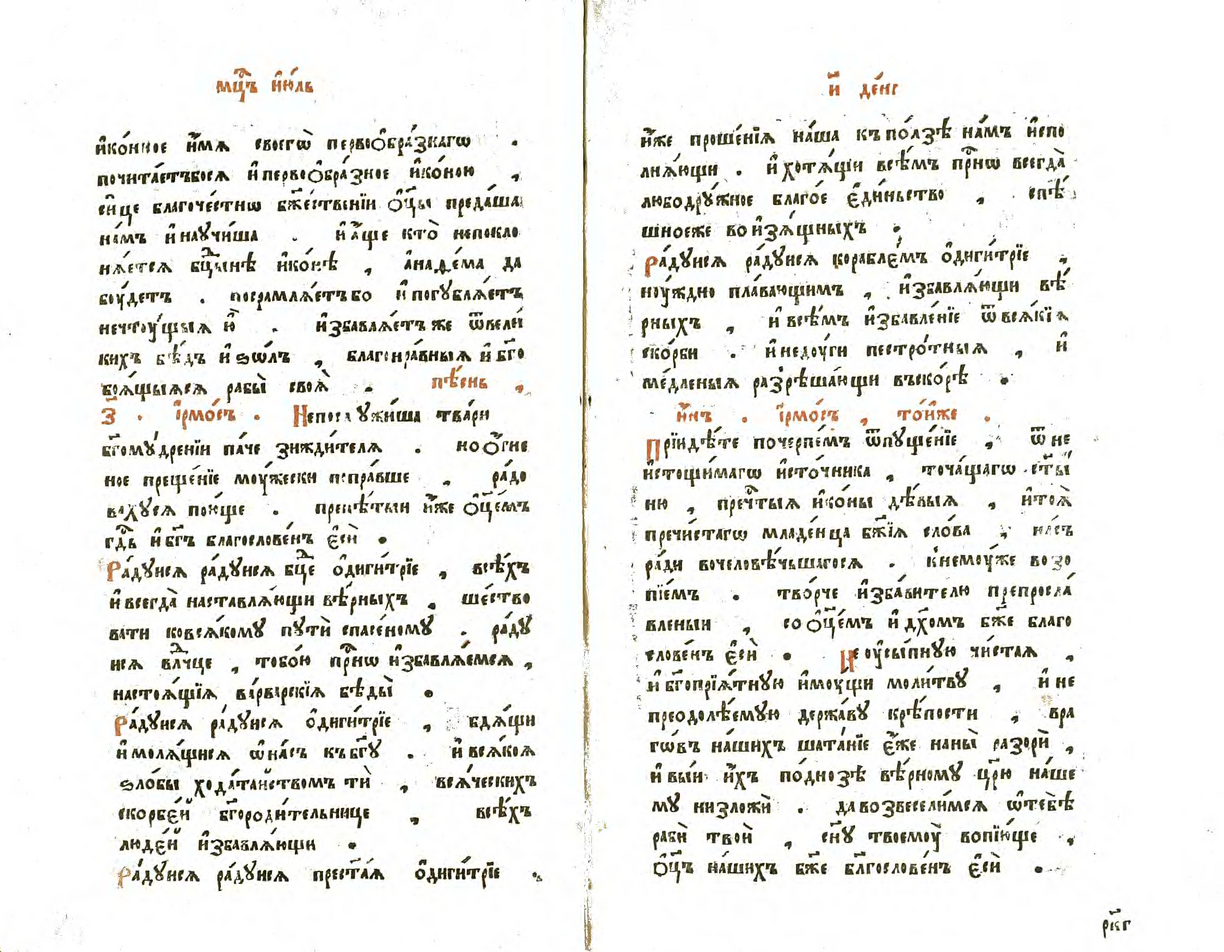 мц҃ъ ию́ль
ико́нное и́мя своегѡ̀ первоѻбра́знагѡ .
почита́етъбося и̓первоѻбра́зное и̓ко́ною ,
си́це благоче́стнѡ бж҃е́ственїи ѻ҆ц҃ы̀ преда́ша
на́мъ и̓научи́ша . и̓а́ще кто̀ непокло
ня́ется бц҃ынѣ и̓ко́нѣ , а̓на́ѳема да
бꙋ́детъ . посрамля́етъбо и̓погубля́етъ
нечтꙋ́щыя ю̀ . и̓збавля́етъже ѿвели́
кихъ бѣ́дъ и̓ ѕѡ́лъ , благонра́вныя и̓ бг҃о
боя́щыяся рабы̀ своя̀ . пѣ́снь ,
з҃ . і̓рмо́съ . Непослꙋжи́ша тва́ри
бг҃омꙋ́дренїи па́че зижди́теля . но ѻ҆́гне
ное преще́нїе мꙋ́жески попра́вше , ра́до
вахꙋся пою́ще . препѣ́тыи и҆́же ѻ҆ц҃е́мъ
гд҃ь и̓ бг҃ъ благослове́нъ є҆сѝ .
Ра́дꙋися ра́дꙋися бц҃е ѻ҆диги́трїе , всѣ́хъ
и̓ всегда̀ наставля́ющи вѣ́рныхъ , ше́ство
вати ковся́комꙋ пꙋтѝ спасе́номꙋ . ра́дꙋ
ися вл҃чце , тобо́ю пр҃нѡ и̓збавля́емся ,
настоя́щїя ва́рварскїя бѣ́ды̀ .
Ра́дꙋися ра́дꙋися ѻ҆диги́трїе , бдя́щи
и̓ моля́щися ѡ̓на́съ къ бг҃ꙋ . и̓ вся́коя
ѕло́бы хода́таиствомъ тѝ , вся́ческихъ
скорбе́й бг҃ороди́тельнице , всѣ́хъ
люде́й и̓збавля́ющи .
Ра́дꙋися ра́дꙋися прест҃а́я ѻ҆диги́трїе .
и҃ де́нь
и҆́же проше́нїя на́ша къ по́лзѣ на́мъ и̓спо
лня́ющи . и̓ хотя́щїи всѣ́мъ пр҃нѡ всегда̀
любодрꙋ́жное благо́е є҆ди́ньство , спѣ́
шноеже во и̓зя́щныхъ .
Ра́дꙋися ра́дꙋися корабле́мъ ѻ҆диги́трїе ,
нꙋ́ждно пла́вающимъ , и̓збавля́ющи вѣ́
рныхъ , и̓ всѣ́мъ и̓збавле́нїе ѿ вся́кїя
ско́рби . и̓ недꙋ́ги пестро́тныя , и̓
ме́дленыя разрѣша́ющи въско́рѣ .
и҆́нъ . і̓рмо́съ , то́йже .
Прїидѣ́те почерпе́мъ ѿпꙋще́нїе , ѿ не
и̓стощи́магѡ и̓сто́чника , точа́щагѡ ст҃ы́
ню , преч҃тыя и̓ко́ны дѣ́выя , и̓ тоя̀
пречи́стагѡ младе́нца бж҃їя сло́ва , на́съ
ра́ди вочеловѣ́чьшагося . к̾немꙋ́же возо
пїе́мъ . тво́рче и̓зба́вителю препросла́
вленыи , со ѻ҆ц҃е́мъ и̓ дх҃омъ бж҃е благо
слове́нъ є҆сѝ . Неꙋсы́пнꙋю чи́стая ,
и̓ бг҃опрїя́тнꙋю и̓мꙋ́щи моли́твꙋ , и̓ не
преодолѣ́емꙋю держа́вꙋ крѣ́пости , вра
гѡ́въ на́шихъ шата́нїе є҆́же наны̀ разорѝ ,
и̓ выи и҆́хъ по́днозѣ вѣ́рномꙋ цр҃ю на́ше
мꙋ низложѝ . да возвесели́мся ѡ̓тебѣ̀
рабѝ твоѝ , сн҃ꙋ твоемꙋ̀ вопїю́ще .
ѻ҆ц҃ъ на́шихъ бж҃е бл҃гослове́нъ є҆сѝ .
рк҃г